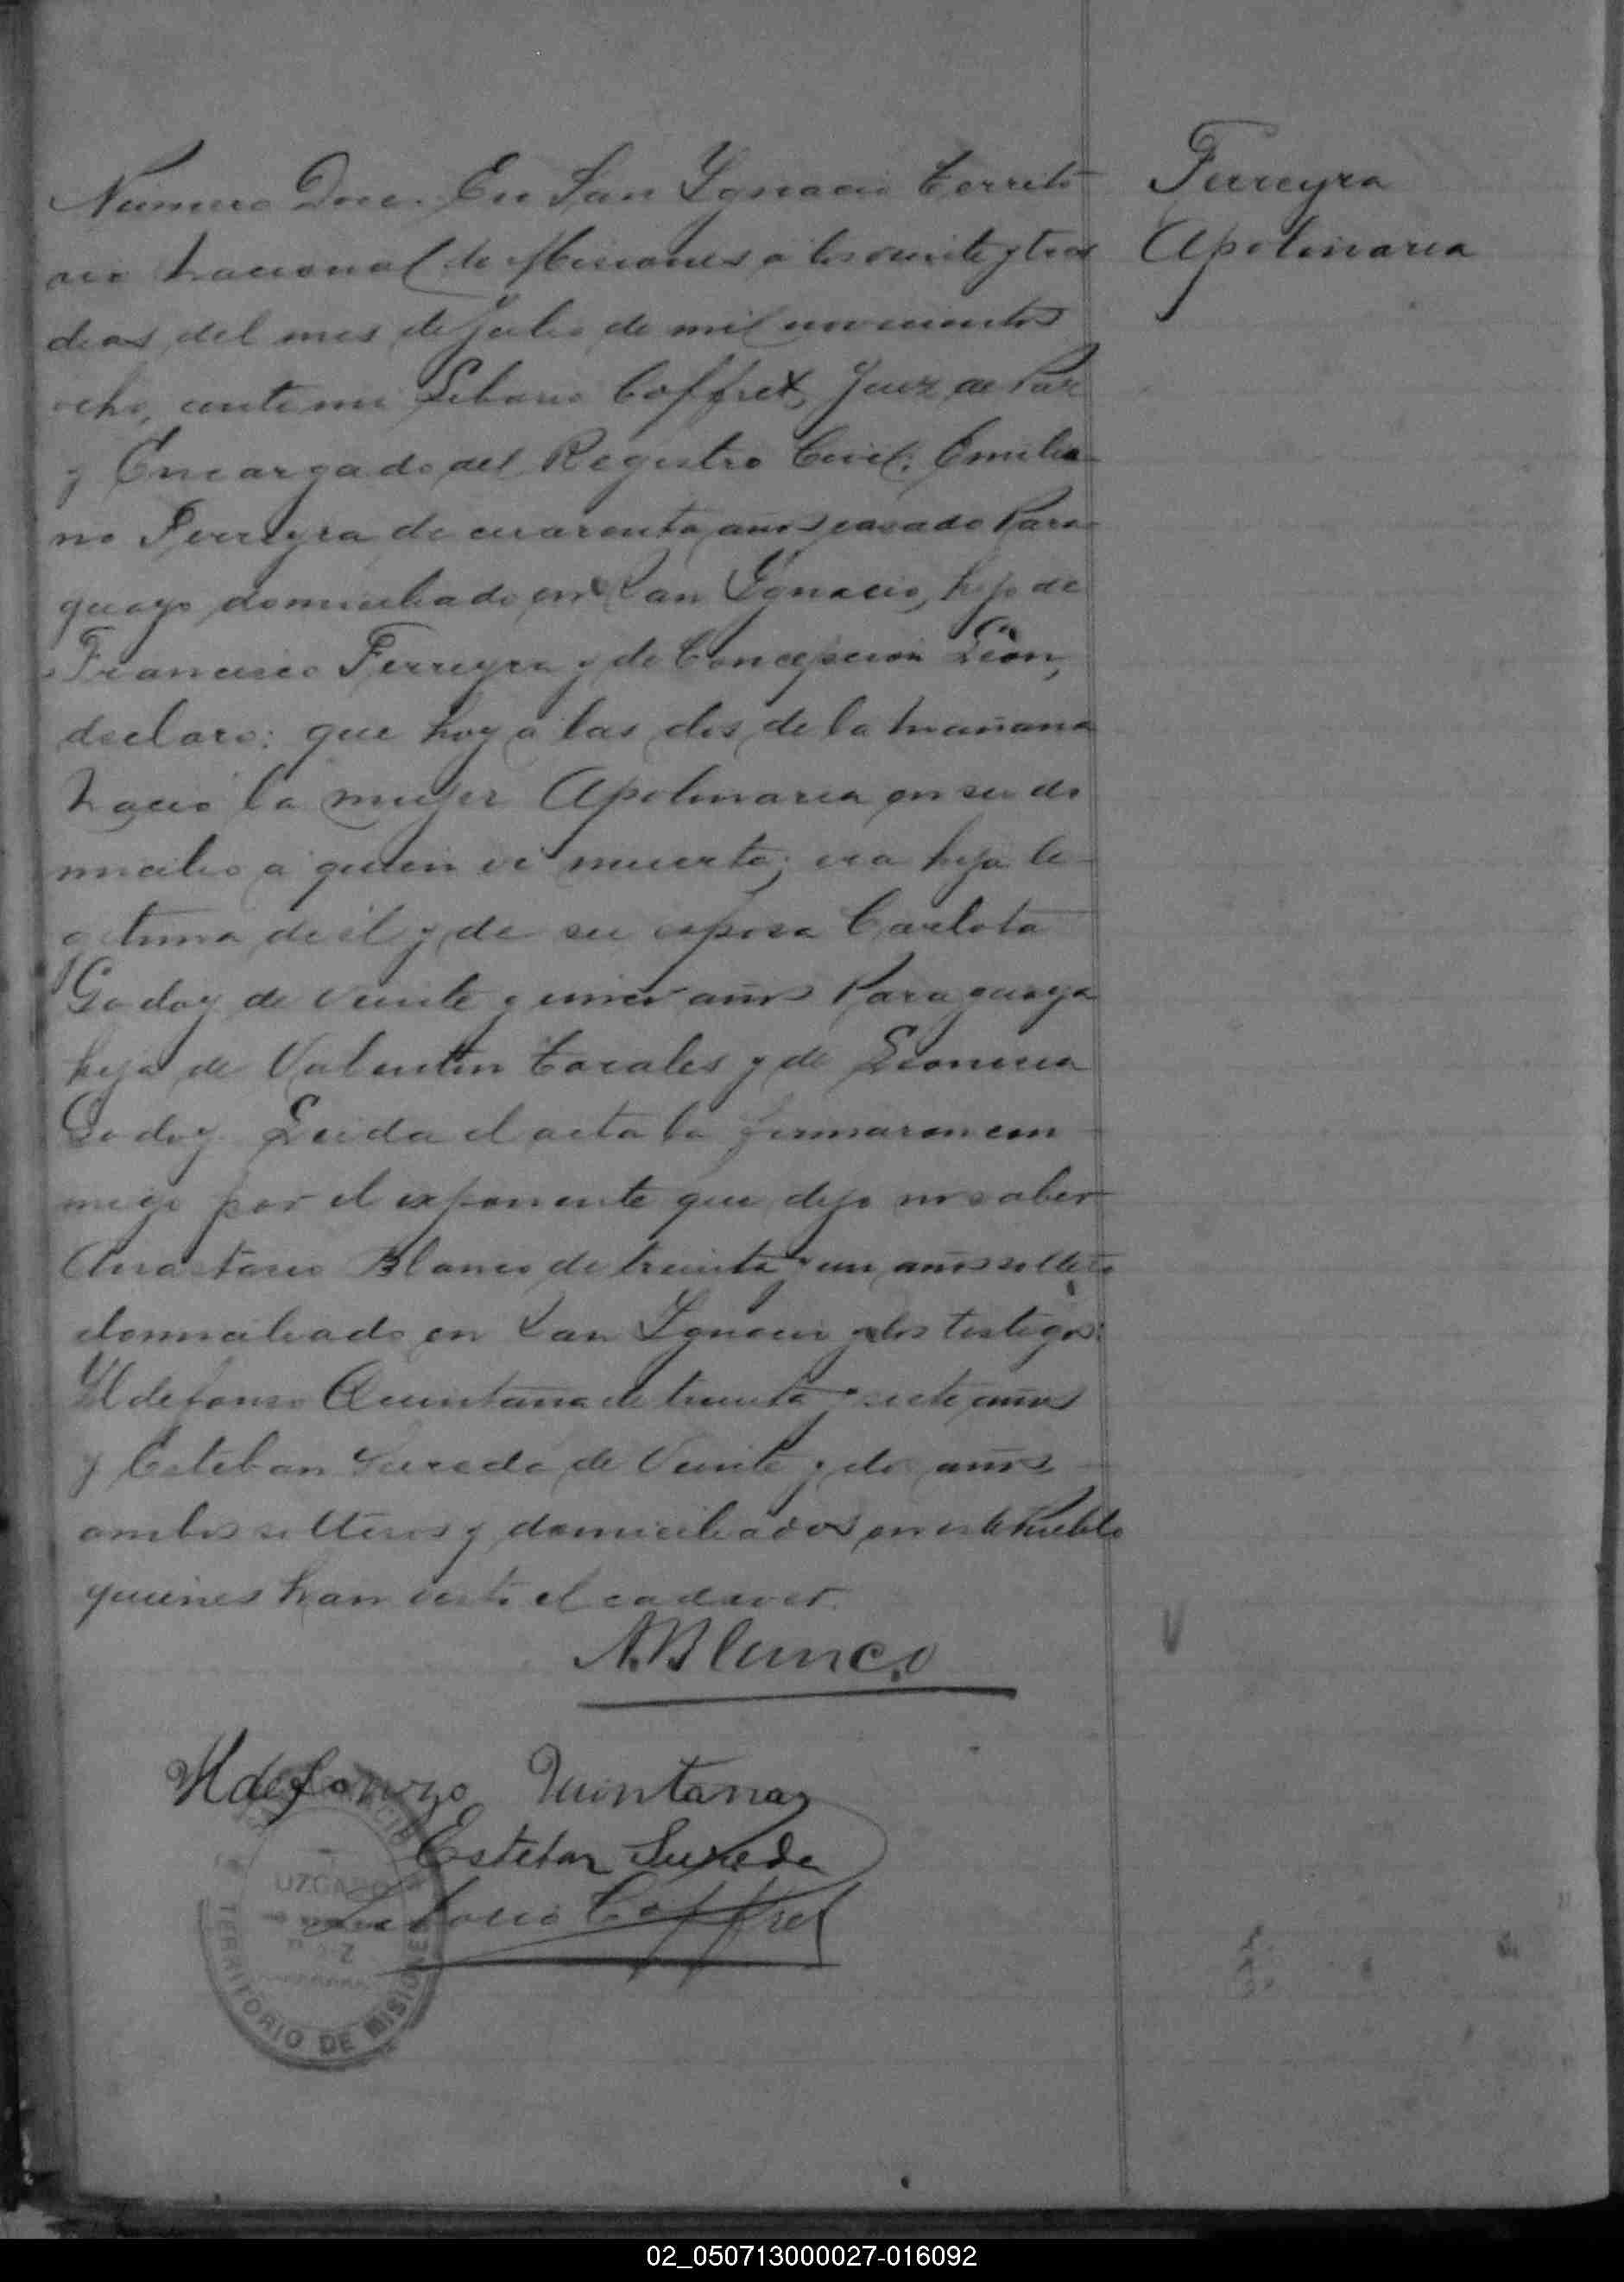 Ferreyra
Apolinaria
Número Doce. En San Ygnacio Territo
rio Nacional de Misiones a los veinte y tres
dias del mes de Julio de mil novecientos
ocho, ante mi Liborio Coffret, Juez de Paz
y Encargado del Registro Civil: Emilia-
no Ferreyra de cuarenta años casado Para-
guayo domiciliado en San Ygnacio, hijo de
Francisco Ferreyra y de Concepcion Leon,
declaro: que hoy a las dos de la mañana
nacio la mujer Apolinaria en su do
micilio a quien vi muerta; era hija le-
gitima de él y de su esposa Carlota
Godoy de veinte y años Paraguaya
hija de Valentin Cocales y de
Godoy. Leida el acta la firmaron con
migo por el exponente que dijo no saber
Anastacio Blanco de treinta y un años soltero
domiciliado en San Ygnacio y los testigos:
Yldefonso Quintana de treinta y siete años
y Esteban Sureda de veinte y dos años
ambos solteros y domiciliados en este Pueblo
quienes han visto el cadaver.
A. Blanco
Yldefonzo Quintana
Esteban Sureda
Liborio Coffret
UZGADO
TERRITORIO DE MISIONES
02_050713000027-016092